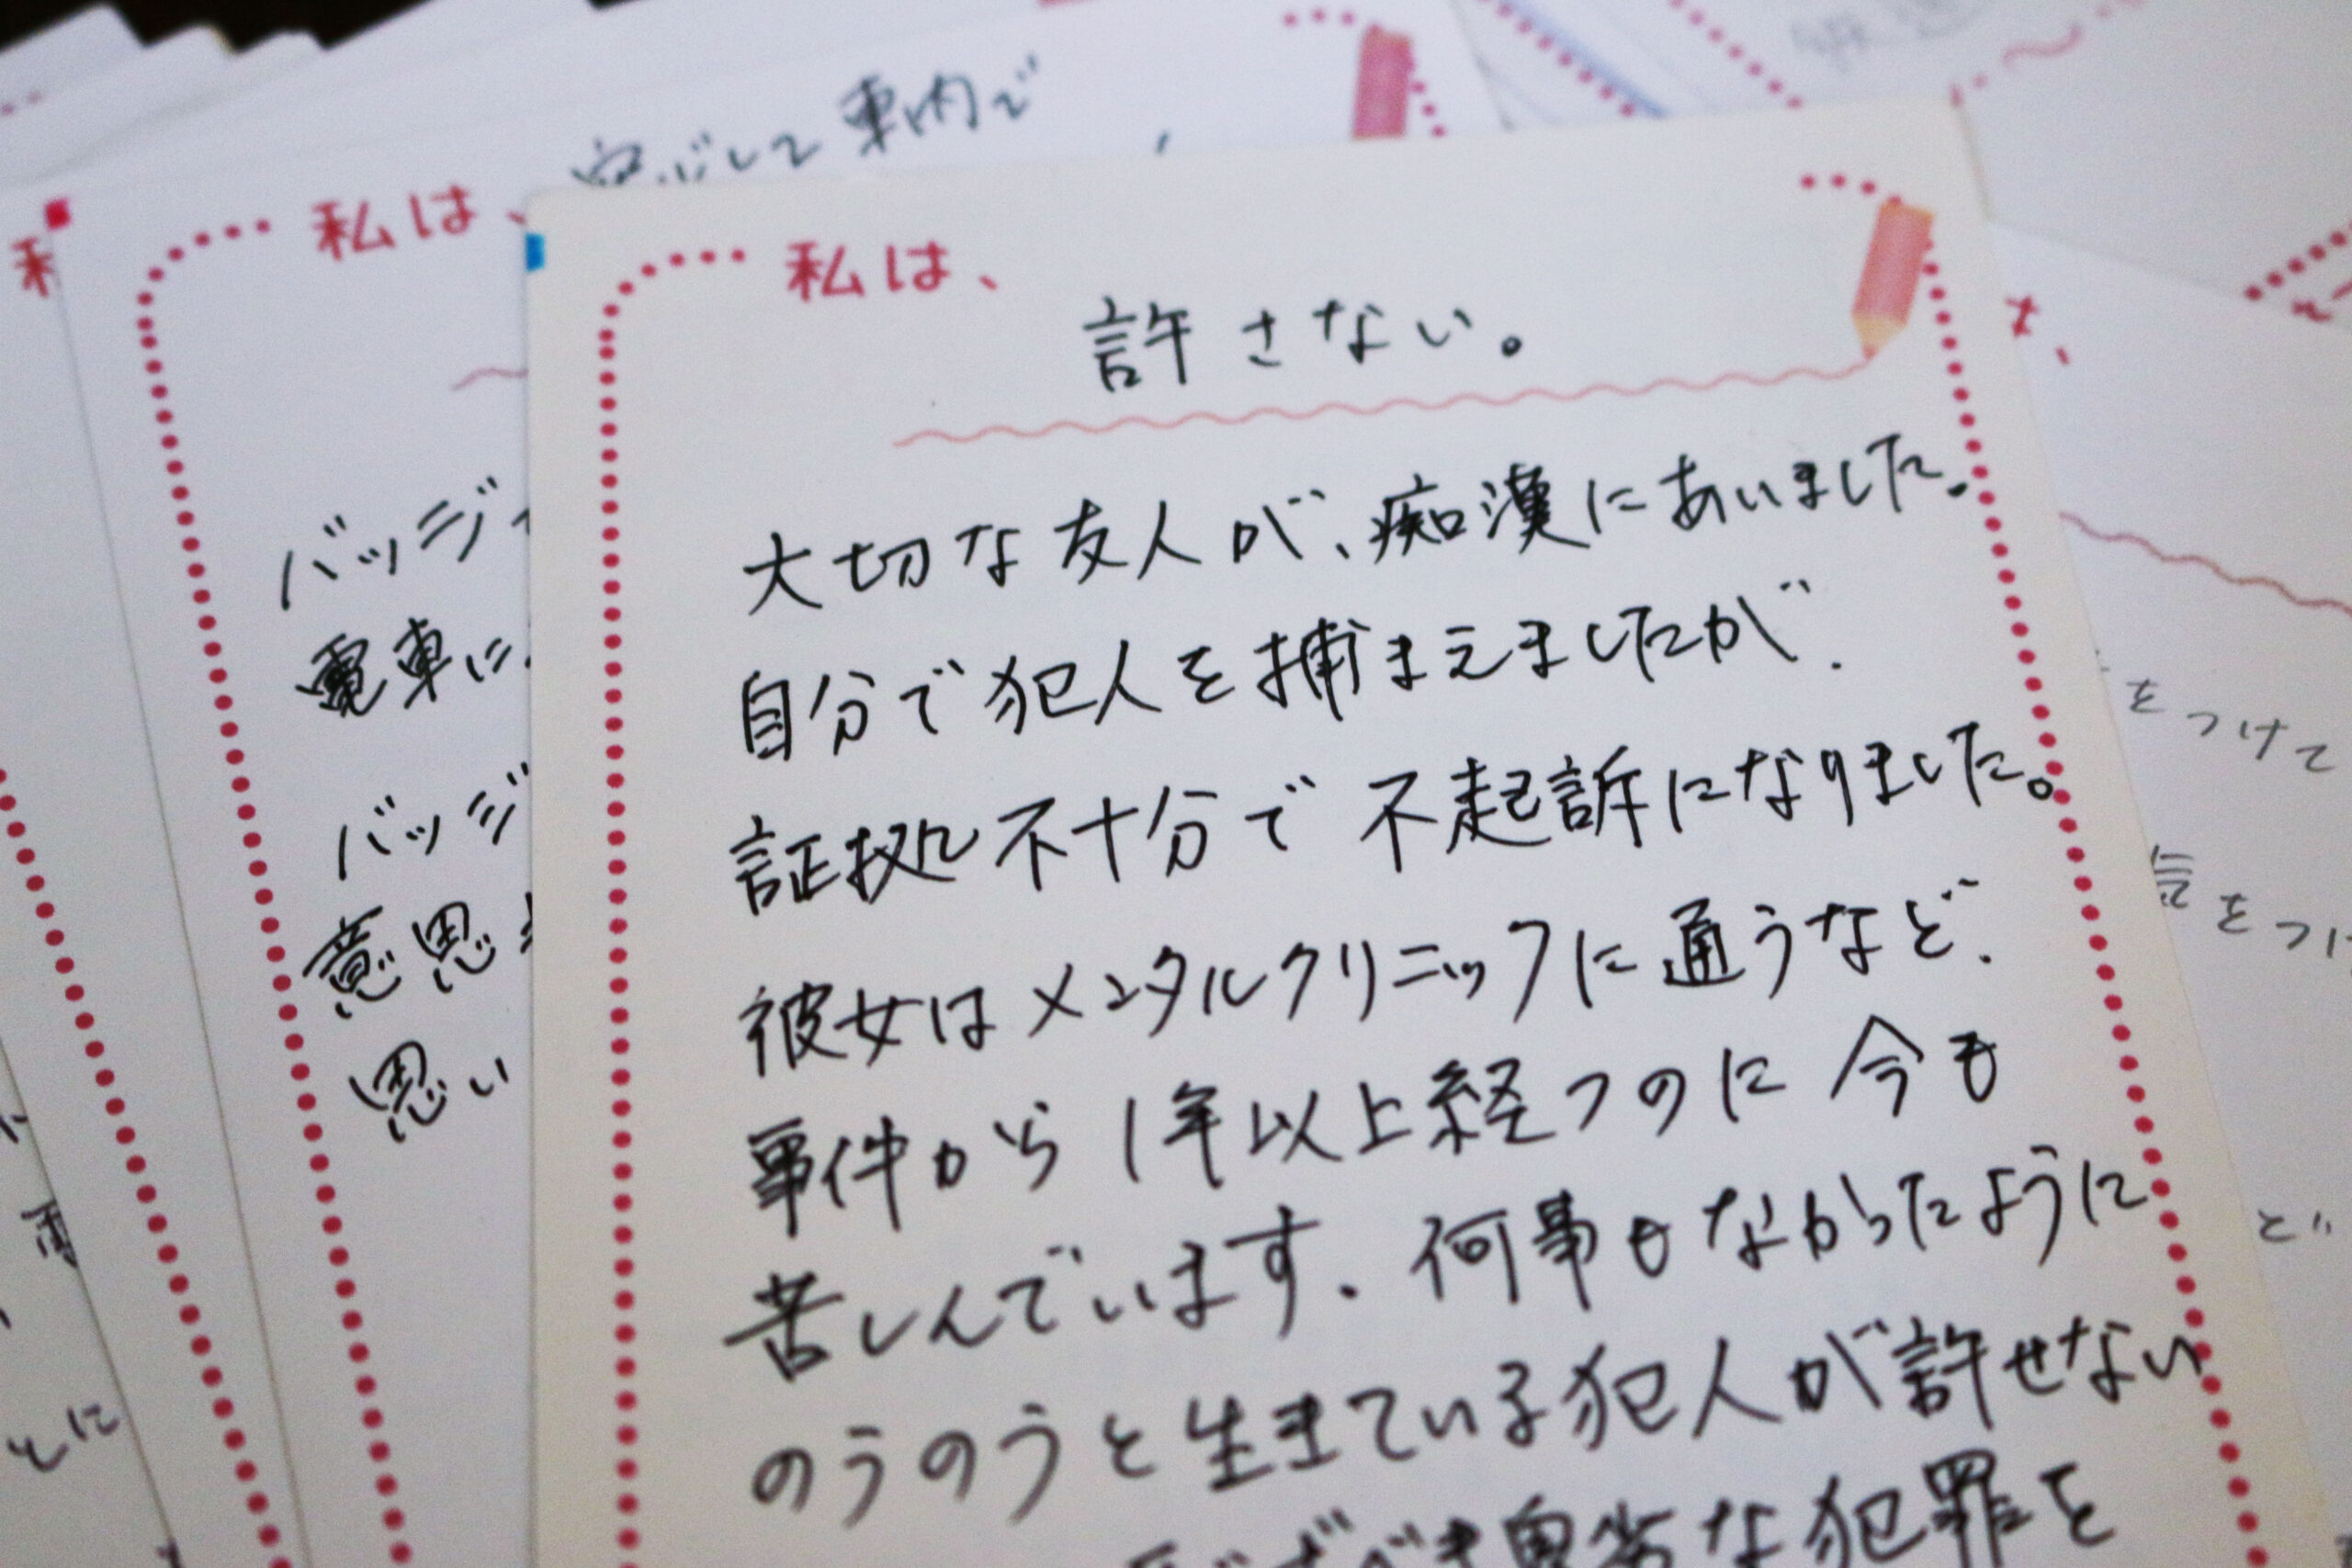 私は、
許さない。
大切な友人が、痴漢にあいました。
自分で犯人を捕まえましたが、
証拠不十分で不起訴になりました。
彼女はメンタルクリニックに通うなど、
事件から1年以上経つのに今も
苦しんでいます。何事もなかったように
のうのうと生きている犯人が許せない
な犯罪を
車内で
私は、
バッジ
電車に
バッジ
意思
思い
私
をつけて
気をつけ
とに